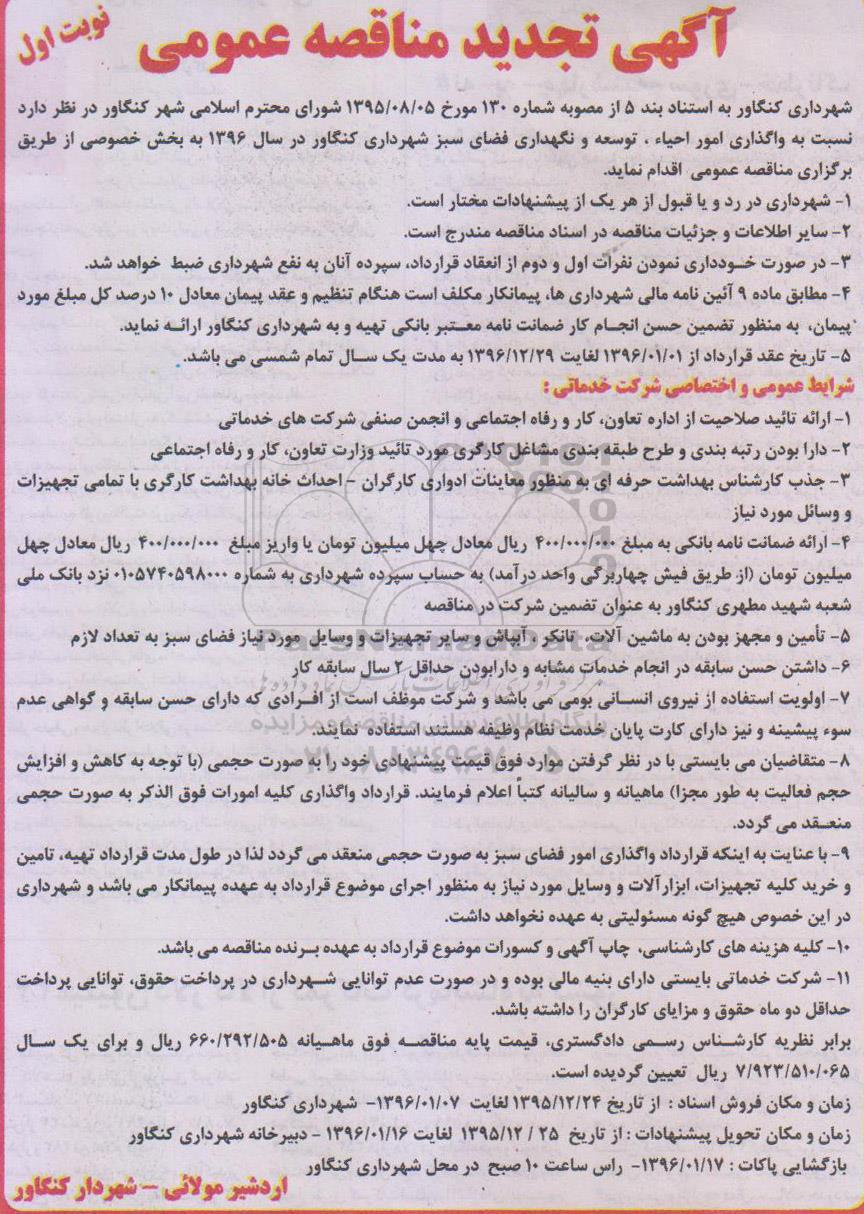 آگهی تجدید مناقصه عمومی
نوبت اول
شهرداری کنگاور به استناد بند ۵ از مصوبه شماره ۱۳۰ مورخ ۱۳۹۵/۰۸/۰۵ شورای محترم اسلامی شهر کنگاور در نظر دارد
نسبت به واگذاری امور احیاء ، توسعه و نگهداری فضای سبز شهرداری کنگاور در سال ۱۳۹۶ به بخش خصوصی از طریق
برگزاری مناقصه عمومی اقدام نماید.
۱- شهرداری در رد و یا قبول از هر یک از پیشنهادات مختار است.
۲- سایر اطلاعات و جزئیات مناقصه در اسناد مناقصه مندرج است.
۳- در صورت خودداری نمودن نفرات اول و دوم از انعقاد قرارداد، سپرده آنان به نفع شهرداری ضبط خواهد شد.
۴- مطابق ماده ۹ آئین نامه مالی شهرداری ها، پیمانکار مکلف است هنگام تنظیم و عقد پیمان معادل ۱۰ درصد کل مبلغ مورد
پیمان، به منظور تضمین حسن انجام کار ضمانت نامه معتبر بانکی تهیه و به شهرداری کنگاور ارائه نماید.
۵- تاریخ عقد قرارداد از ۱۳۹۶/۰۱/۰۱ لغایت ۱۳۹۶/۱۲/۲۹ به مدت یک سال تمام شمسی می باشد.
شرایط عمومی و اختصاصی شرکت خدماتی :
۱- ارائه تائید صلاحیت از اداره تعاون، کار و رفاه اجتماعی و انجمن صنفی شرکت های خدماتی
۲- دارا بودن رتبه بندی و طرح طبقه بندی مشاغل کارگری مورد تائید وزارت تعاون، کار و رفاه اجتماعی
۳- جذب کارشناس بهداشت حرفه ای به منظور معاینات ادواری کارگران - احداث خانه بهداشت کارگری با تمامی تجهیزات
و وسائل مورد نیاز
۴- ارائه ضمانت نامه بانکی به مبلغ ۴۰۰/۰۰۰/۰۰۰ ریال معادل چهل میلیون تومان یا واریز مبلغ ۴۰۰/۰۰۰/۰۰۰ ریال معادل چهل
میلیون تومان (از طریق فیش چهاربرگی واحد درآمد) به حساب سپرده شهرداری به شماره ۰۱۰۵۷۴۰۵۹۸۰۰۰ نزد بانک ملی
شعبه شهید مطهری کنگاور به عنوان تضمین شرکت در مناقصه
۵- تأمین و مجهز بودن به ماشین آلات، تانکر ، آبپاش و سایر تجهیزات و وسایل مورد نیاز فضای سبز به تعداد لازم
۶- داشتن حسن سابقه در انجام خدمات مشابه و دارابودن حداقل ۲ سال سابقه کار
۷- اولویت استفاده از نیروی انسانی بومی می باشد و شرکت موظف است از افرادی که دارای حسن سابقه و گواهی عدم
سوء پیشینه و نیز دارای کارت پایان خدمت نظام وظیفه هستند استفاده نمایند.
۸- متقاضیان می بایستی با در نظر گرفتن موارد فوق قیمت پیشنهادی خود را به صورت حجمی (با توجه به کاهش و افزایش
حجم فعالیت به طور مجزا) ماهیانه و سالیانه کتباً اعلام فرمایند. قرارداد واگذاری کلیه امورات فوق الذکر به صورت حجمی
منعقد می گردد.
۹- با عنایت به اینکه قرارداد واگذاری امور فضای سبز به صورت حجمی منعقد می گردد لذا در طول مدت قرارداد تهیه، تامین
و خرید کلیه تجهیزات، ابزارآلات و وسایل مورد نیاز به منظور اجرای موضوع قرارداد به عهده پیمانکار می باشد و شهرداری
در این خصوص هیچ گونه مسئولیتی به عهده نخواهد داشت.
۱۰- کلیه هزینه های کارشناسی، چاپ آگهی و کسورات موضوع قرارداد به عهده برنده مناقصه می باشد.
۱۱- شرکت خدماتی بایستی دارای بنیه مالی بوده و در صورت عدم توانایی شهرداری در پرداخت حقوق، توانایی پرداخت
حداقل دو ماه حقوق و مزایای کارگران را داشته باشد.
برابر نظریه کارشناس رسمی دادگستری، قیمت پایه مناقصه فوق ماهیانه ۶۶۰/۲۹۲/۵۰۵ ریال و برای یک سال
۷/۹۲۳/۵۱۰/۰۶۵ ریال تعیین گردیده است.
زمان و مکان فروش اسناد : از تاریخ ۱۳۹۵/۱۲/۲۴ لغایت ۱۳۹۶/۰۱/۰۷- شهرداری کنگاور
زمان و مکان تحویل پیشنهادات : از تاریخ ۲۵ / ۱۲ /۱۳۹۵ لغایت ۱۳۹۶/۰۱/۱۶ - دبیرخانه شهرداری کنگاور
بازگشایی پاکات : ۱۳۹۶/۰۱/۱۷- راس ساعت ۱۰ صبح در محل شهرداری کنگاور
اردشیر مولائی - شهردار کنگاور
ParsNamadData